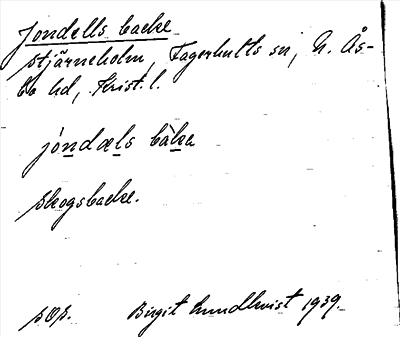 Jondells backe
Stjärneholm, Fagerhults sn, N. Ås-
bo hd, Krist. l.
jóndæls bàka
skogsbacke.
Birgit Lundkvist 1939.